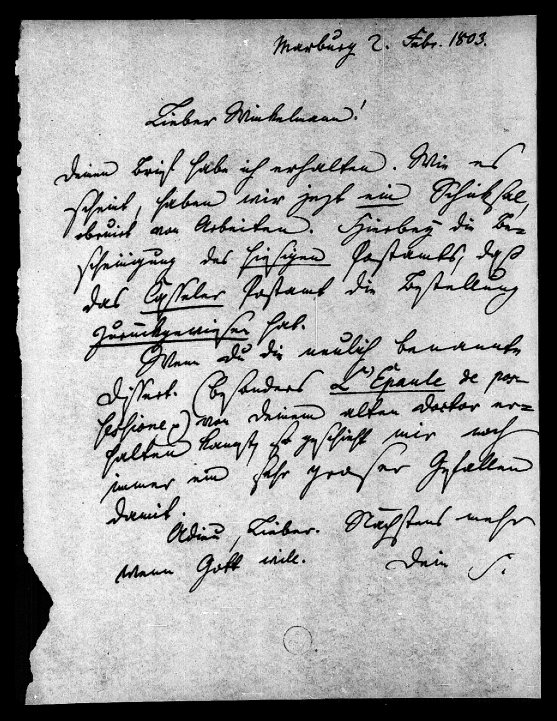 Marburg 2. Febr. 1803.
Lieber Winkelmann!
Deinen Brief habe ich erhalten. Wie es
scheint, haben wir jezt ein Schicksal,
von Arbeiten. Hierbey die Be-
scheinigung des hiesigen Postamts, daß
das Casseler Postamt die Bestellung
zurückgewiesen hat.
Wenn du die neulich benannte
Dissert. (besonders L'Epaule de per-
) von deinem alten Doctor er-
halten kanst, so geschieht mir noch
immer ein sehr grosser Gefallen
damit.
Adieu, Lieber. Nächstens mehr
wenn Gott will. Dein S.